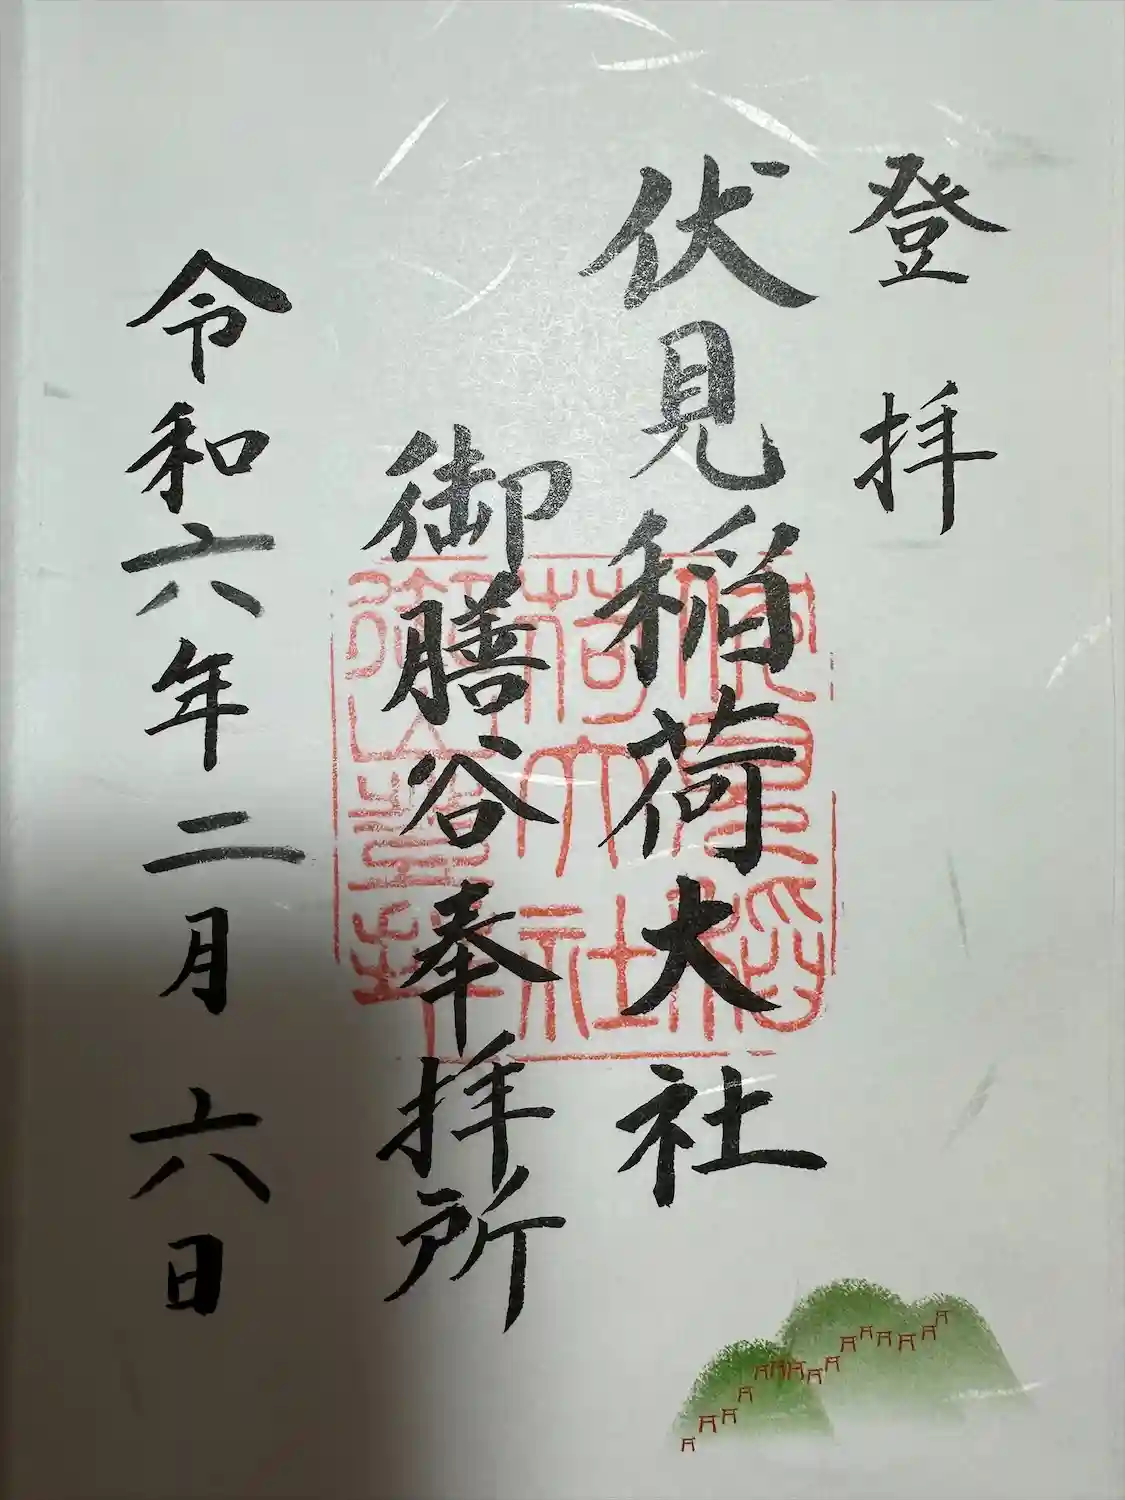 登拝
伏見稲荷大社
御膳谷奉拝所
令和六年二月六日